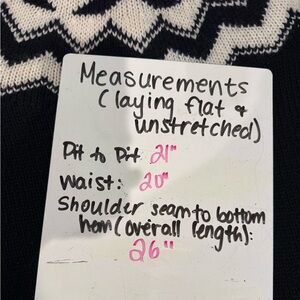 Measurements
(laying flat &
unstretched)
Pit to Pit 21"
Waist: 20"
Shoulder seam to bottom
hem (overall length):
26"